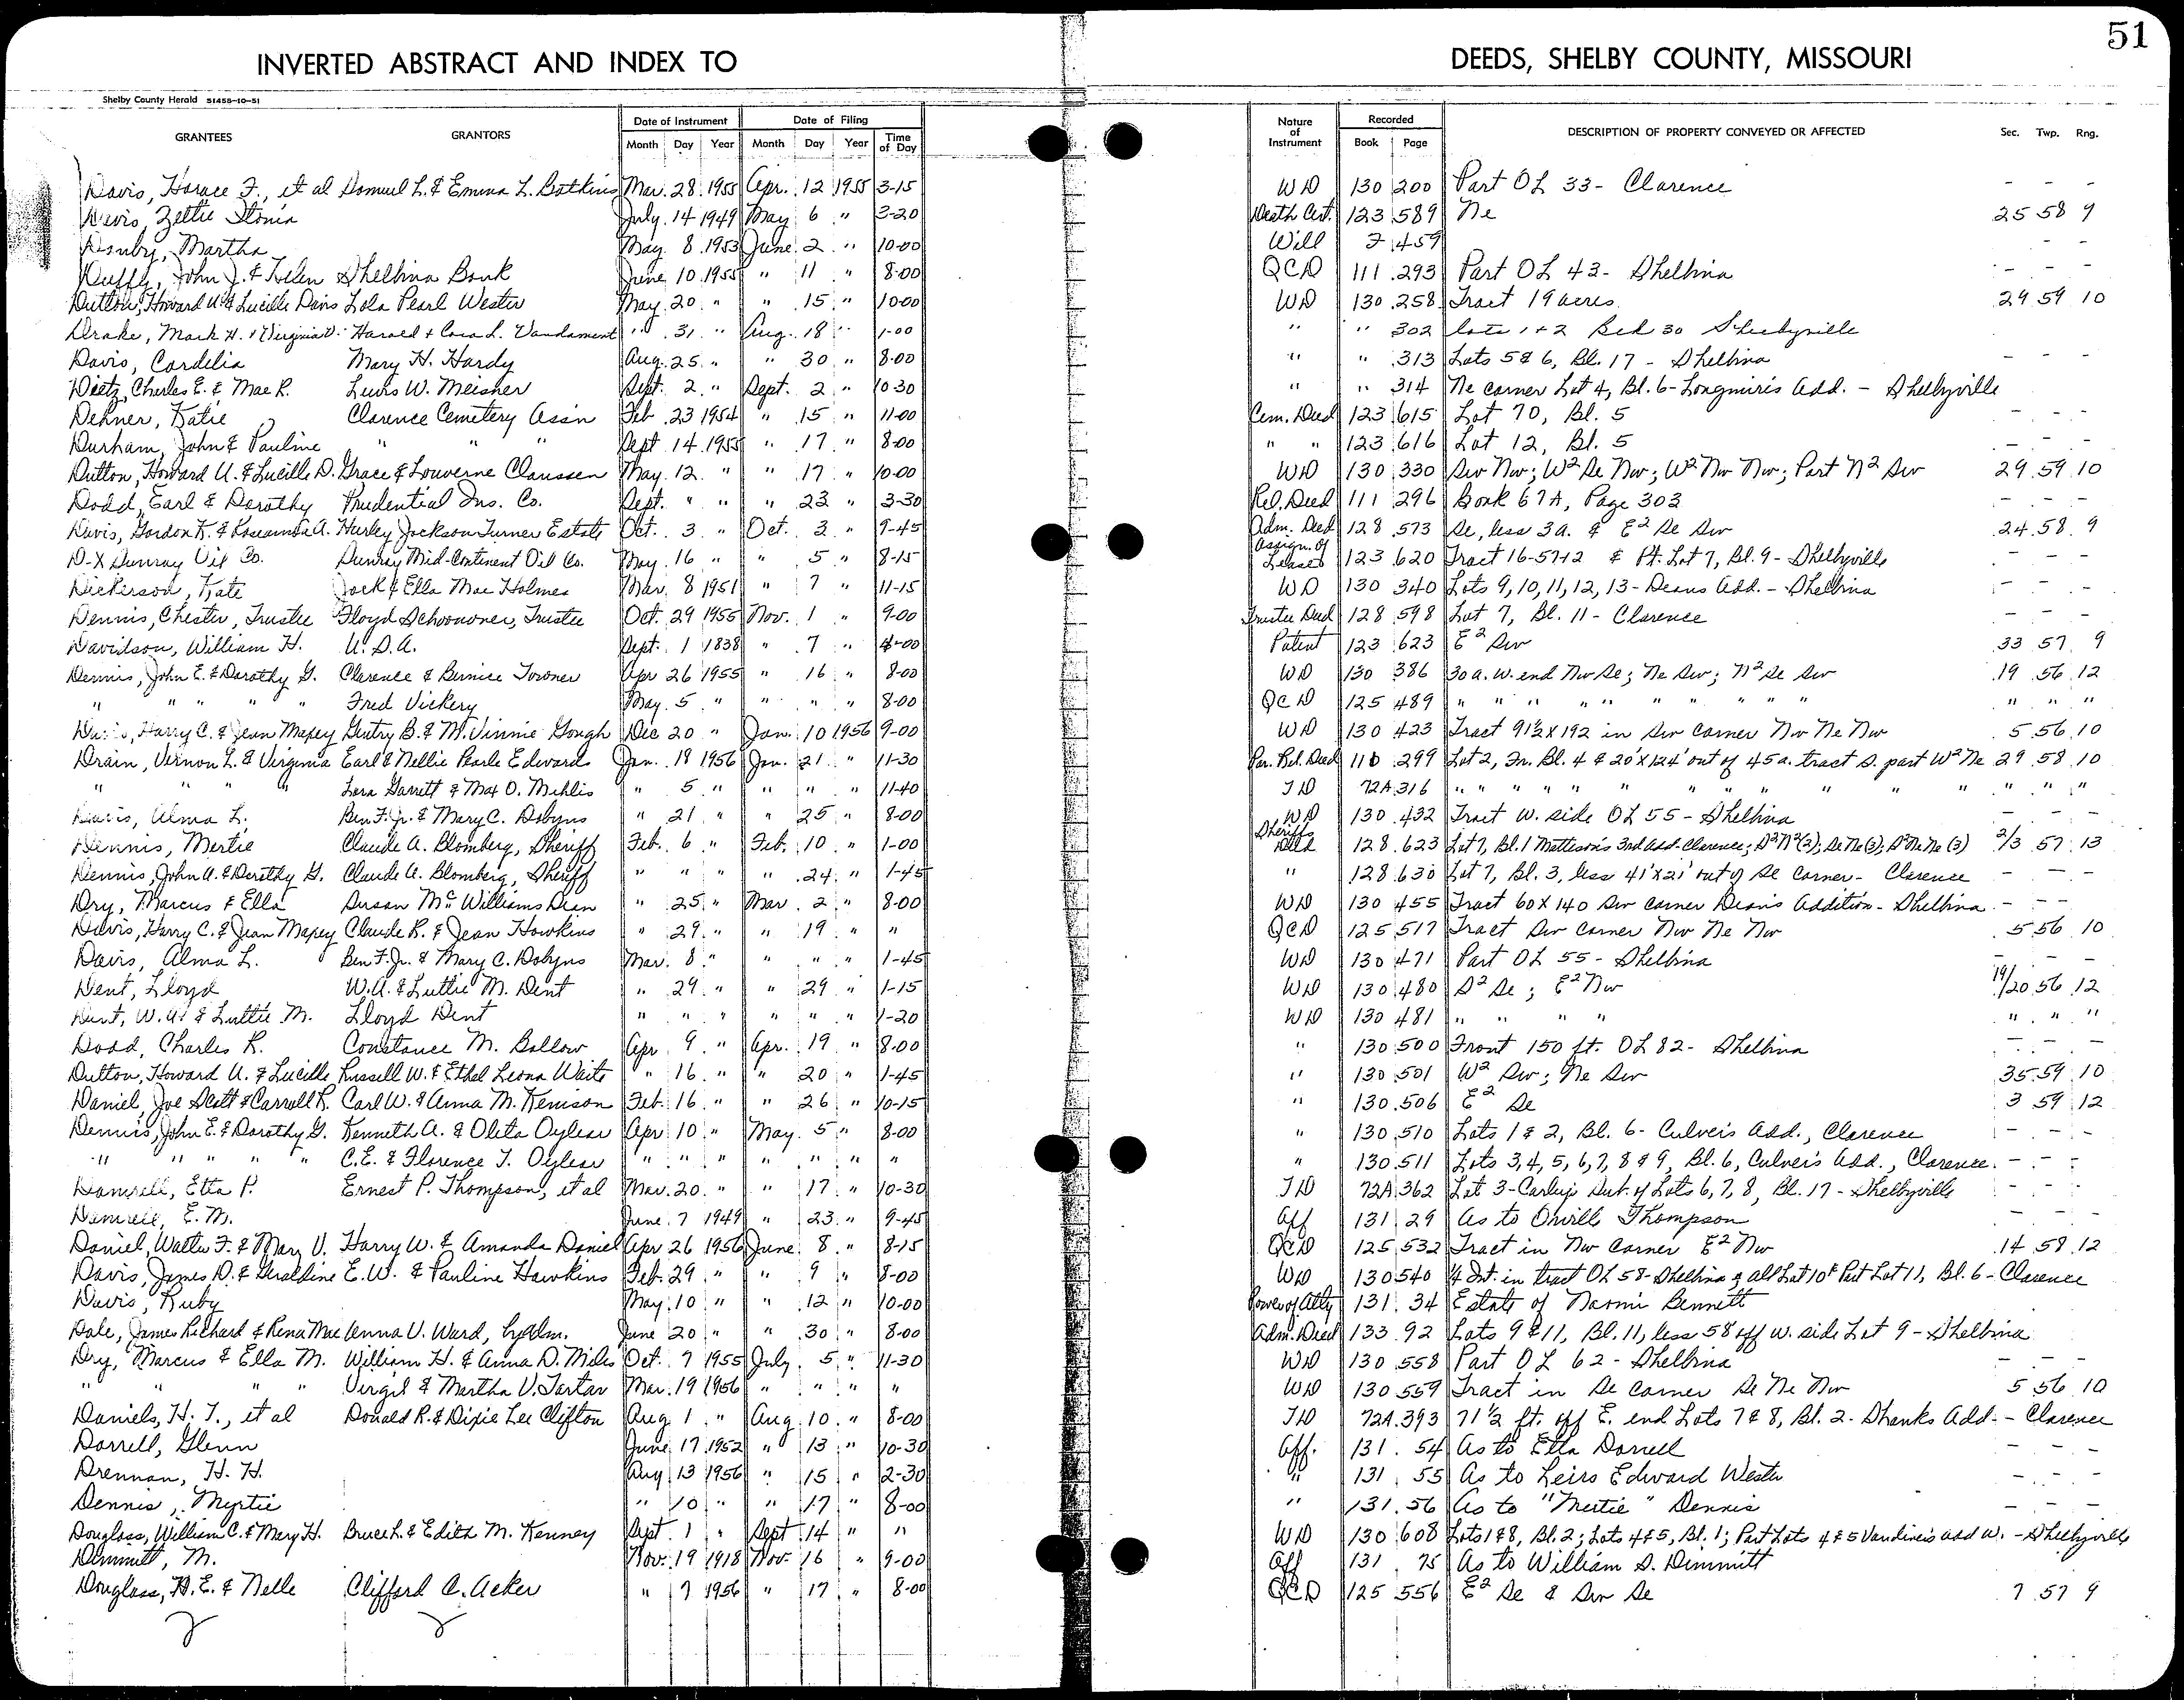 51
INVERTED ABSTRACT AND INDEX TO DEEDS, SHELBY COUNTY, MISSOURI
Shelby County Herald 51455-10-51
GRANTEES GRANTORS Date of Instrument Date of Filing Nature of Instrument Recorded DESCRIPTION OF PROPERTY CONVEYED OR AFFECTED Sec. Twp. Rng.
Month Day Year Month Day Year Time of Day Book Page
Davis, Horace F., et al Samuel L. & Emma L. Botkins Mar. 28 1955 Apr. 12 1955 3-15 WD 130 200 Part OL 33 - Clarence - - -
Devis, Zettie Stonia July 14 1949 May 6 " 3-20 Death Cert. 123 589 Ne 25 58 9
Martha May 8 1953 June 2 " 10-00 Will 459 - -
Duffy, John J. & Helen Shelbina Bank June 10 1955 " 11 " 8-00 QCD 111 293 Part OL 43 - Shelbina - - -
Dutton, Howard U. & Lucille Davis Lola Pearl Wester May 20 " " 15 " 10-00 WD 130 258 Tract 19 acres 29 59 10
Drake, Mark H. & Virginia D. Harold + Cora L. Vandament " 31 " Aug. 18 " 1-00 " " 302 Lots 1 + 2 Blk 30 Shelbyville
Davis, Cordelia Mary H. Hardy Aug. 25 " " 30 " 8-00 " " 313 Lots 5 & 6, Bl. 17 - Shelbina - - -
Dietz, Charles E. & Mae R. Lewis W. Meisner Sept. 2 " Sept. 2 " 10 30 " " 314 Ne corner Lot 4, Bl. 6 - Longmire's Add. - Shelbyville
Dehner, Katie Clarence Cemetery Ass'n Feb 23 1954 " 15 " 11-00 Cem. Deed 123 615 Lot 70, Bl. 5 - - -
Durham, John & Pauline " " " Sept 14 1955 " 17 " 8-00 " " 123 616 Lot 12, Bl. 5 - - -
Dutton, Howard U. & Lucille D. Grace & Louverne Claussen May 12 " " 17 " 10-00 WD 130 330 Sw Nw; W² Se Nw; W² Nw Nw; Part N² Sw 29 59 10
Dodd, Earl & Dorothy Prudential Ins. Co. Sept. " " " 23 " 3-30 Rel. Deed 111 296 Book 67A, Page 303 - - -
Davis, Gordon K. & Rosamda A. Hurley Jackson Turner Estate Oct. 3 " Oct. 3 " 9-45 Adm. Deed 128 573 Se, less 3a. & E² Se Sw 24 58 9
D-X Sunray Oil Co. Sunray Mid-Continent Oil Co. May 16 " " 5 " 8-15 Assign. of Leases 123 620 Tract 16-57-12 & Pt. Lot 7, Bl. 9 - Shelbyville - - -
Dickerson, Kate Jack & Ella Mae Holmes Mar. 8 1951 " 7 " 11-15 WD 130 340 Lots 9, 10, 11, 12, 13 - Deans Add. - Shelbina - - -
Dennis, Chester, Trustee Floyd Schoonover, Trustee Oct. 29 1955 Nov. 1 " 9-00 Trustee Deed 128 598 Lot 7, Bl. 11 - Clarence - - -
Davidson, William H. U. S. A. Sept. 1 1838 " 7 " 4-00 Patent 123 623 E² Sw 33 57 9
Dennis, John E. & Dorothy G. Clarence & Bernice Towner Apr 26 1955 " 16 " 8-00 WD 130 386 30 a. W. end Nw Se; Ne Sw; N² Se Sw 19 56 12
" " " " " Fred Vickery May 5 " " " " 8-00 QCD 125 489 " " " " " " " " " " " "
Davis, Harry C. & Jean Mapey Gentry B. & M. Vinnie Gough Dec 20 " Jan. 10 1956 9-00 WD 130 423 Tract 91½ X 192 in Sw corner Nw Ne Nw 5 56 10
Drain, Vernon L. & Virginia Earl & Nellie Pearle Edwards Jan. 19 1956 Jan. 21 " 11-30 Par. Rel. Deed 110 299 Lot 2, In. Bl. 4 & 20' X 124' out of 45 a. tract S. part W² Ne 29 58 10
" " " " Lora Garrett & Max O. Mihlis " 5 " " " " 11-40 TD 72A 316 " " " " " " " " " " " " " "
Davis, Alma L. Ben F. Jr. & Mary C. Dobyns " 21 " " 25 " 8-00 WD 130 432 Tract W. side OL 55 - Shelbina - - -
Dennis, Mertie Claude A. Blomberg, Sheriff Feb. 6 " Feb. 10 " 1-00 Sheriffs Deed 128 623 Lot 7, Bl. 1 Matteson's 3rd Add. Clarence; S² N² (2); Se Ne (3); S² Ne Ne (3) 2/3 57 13
Dennis, John A. & Dorothy G. Claude A. Blomberg, Sheriff " " " " 24 " 1-45 " 128 630 Lot 7, Bl. 3, less 41' X 21' out of Se corner - Clarence - - -
Dry, Marcus & Ella Susan McWilliams Dean " 25 " Mar. 2 " 8-00 WD 130 455 Tract 60 X 140 Sw corner Dean's Addition - Shelbina - - -
Davis, Harry C. & Jean Mapey Claude R. & Jean Hawkins " 29 " " 19 " " QCD 125 517 Tract Sw corner Nw Ne Nw 5 56 10
Davis, Alma L. Ben F. Jr. & Mary C. Dobyns Mar. 8 " " " " 1-45 WD 130 471 Part OL 55 - Shelbina - - -
Dent, Lloyd W. A. & Luttie M. Dent " 29 " " 29 " 1-15 WD 130 480 S² Se; E² Nw 19/20 56 12
Dent, W. A. & Luttie M. Lloyd Dent " " " " " " 1-20 WD 130 481 " " " " " " "
Dodd, Charles R. Constance M. Ballow Apr 9 " Apr. 19 " 8-00 " 130 500 Front 150 ft. OL 82 - Shelbina - - -
Dutton, Howard U. & Lucille Russell W. & Ethel Leona Waits " 16 " " 20 " 1-45 " 130 501 W² Sw; Ne Sw 35 59 10
Daniel, Joe Scott & Carroll R. Carl W. & Anna M. Kenison Feb. 16 " " 26 " 10-15 " 130 506 E² Se 3 59 12
Dennis, John E. & Dorothy G. Kenneth A. & Oleta Oylear Apr 10 " May 5 " 8-00 " 130 510 Lots 1 & 2, Bl. 6 - Culver's Add., Clarence - - -
" " " " " C. E. & Florence T. Oylear " " " " " " " " 130 511 Lots 3, 4, 5, 6, 7, 8 & 9, Bl. 6, Culver's Add., Clarence - - -
Damrell, Etta P. Ernest P. Thompson, et al Mar. 20 " " 17 " 10-30 TD 72A 362 Lot 3 - Carley's Sub. of Lots 6, 7, 8, Bl. 17 - Shelbyville - - -
Damrell, E. M. June 7 1949 " 23 " 9-45 Aff 131 29 As to Orvill Thompson - - -
Daniel, Walter F. & Mary V. Harry W. & Amanda Daniel Apr 26 1956 June 8 " 8-15 QCD 125 532 Tract in Nw corner E² Nw 14 58 12
Davis, James D. & Geraldine E. W. & Pauline Hawkins Feb. 29 " " 9 " 8-00 WD 130 540 ¼ Int. in tract OL 58 - Shelbina & all Lot 10 & Part Lot 11, Bl. 6 - Clarence
Davis, Ruby May 10 " " 12 " 10-00 Power of Atty 131 34 Estate of Naomi Bennett
Dale, James Richard & Rena Mae Anna V. Ward, by Adm. June 20 " " 30 " 8-00 Adm. Deed 133 92 Lots 9 & 11, Bl. 11, less 58 off W. side Lot 9 - Shelbina
Dry, Marcus & Ella M. William H. & Anna D. Miles Oct. 7 1955 July 5 " 11-30 WD 130 558 Part OL 62 - Shelbina - - -
" " " " Virgil & Martha V. Tartar Mar. 19 1956 " " " " WD 130 559 Tract in Se corner Se Ne Nw 5 56 10
Daniels, H. T., et al Donald R. & Dixie Lee Clifton Aug 1 " Aug 10 " 8-00 TD 72A 393 71½ ft. off E. end Lots 7 & 8, Bl. 2 - Shanks Add. - Clarence
Dorrell, Glenn June 17 1952 " 13 " 10-30 Aff. 131 54 As to Etta Dorrell - - -
Drennan, H. H. Aug 13 1956 " 15 " 2-30 " 131 55 As to Leirs Edward Wester - - -
Dennis, Myrtie " 10 " " 17 " 8-00 " 131 56 As to "Mertie" Dennis - - -
Douglass, William C. & Mary H. Bruce L. & Edith M. Kenney Sept. 1 " Sept 14 " " WD 130 608 Lots 1 & 8, Bl. 2; Lots 4 & 5, Bl. 1; Part Lots 4 & 5 Vandiver's Add W. - Shelbyville
Dimmitt, M. Nov. 19 1918 Nov. 16 " 9-00 Aff 131 75 As to William S. Dimmitt
Douglass, H. E. & Nelle Clifford A. Acker " 7 1956 " 17 " 8-00 QCD 125 556 E² Se & Sw Se 7 57 9